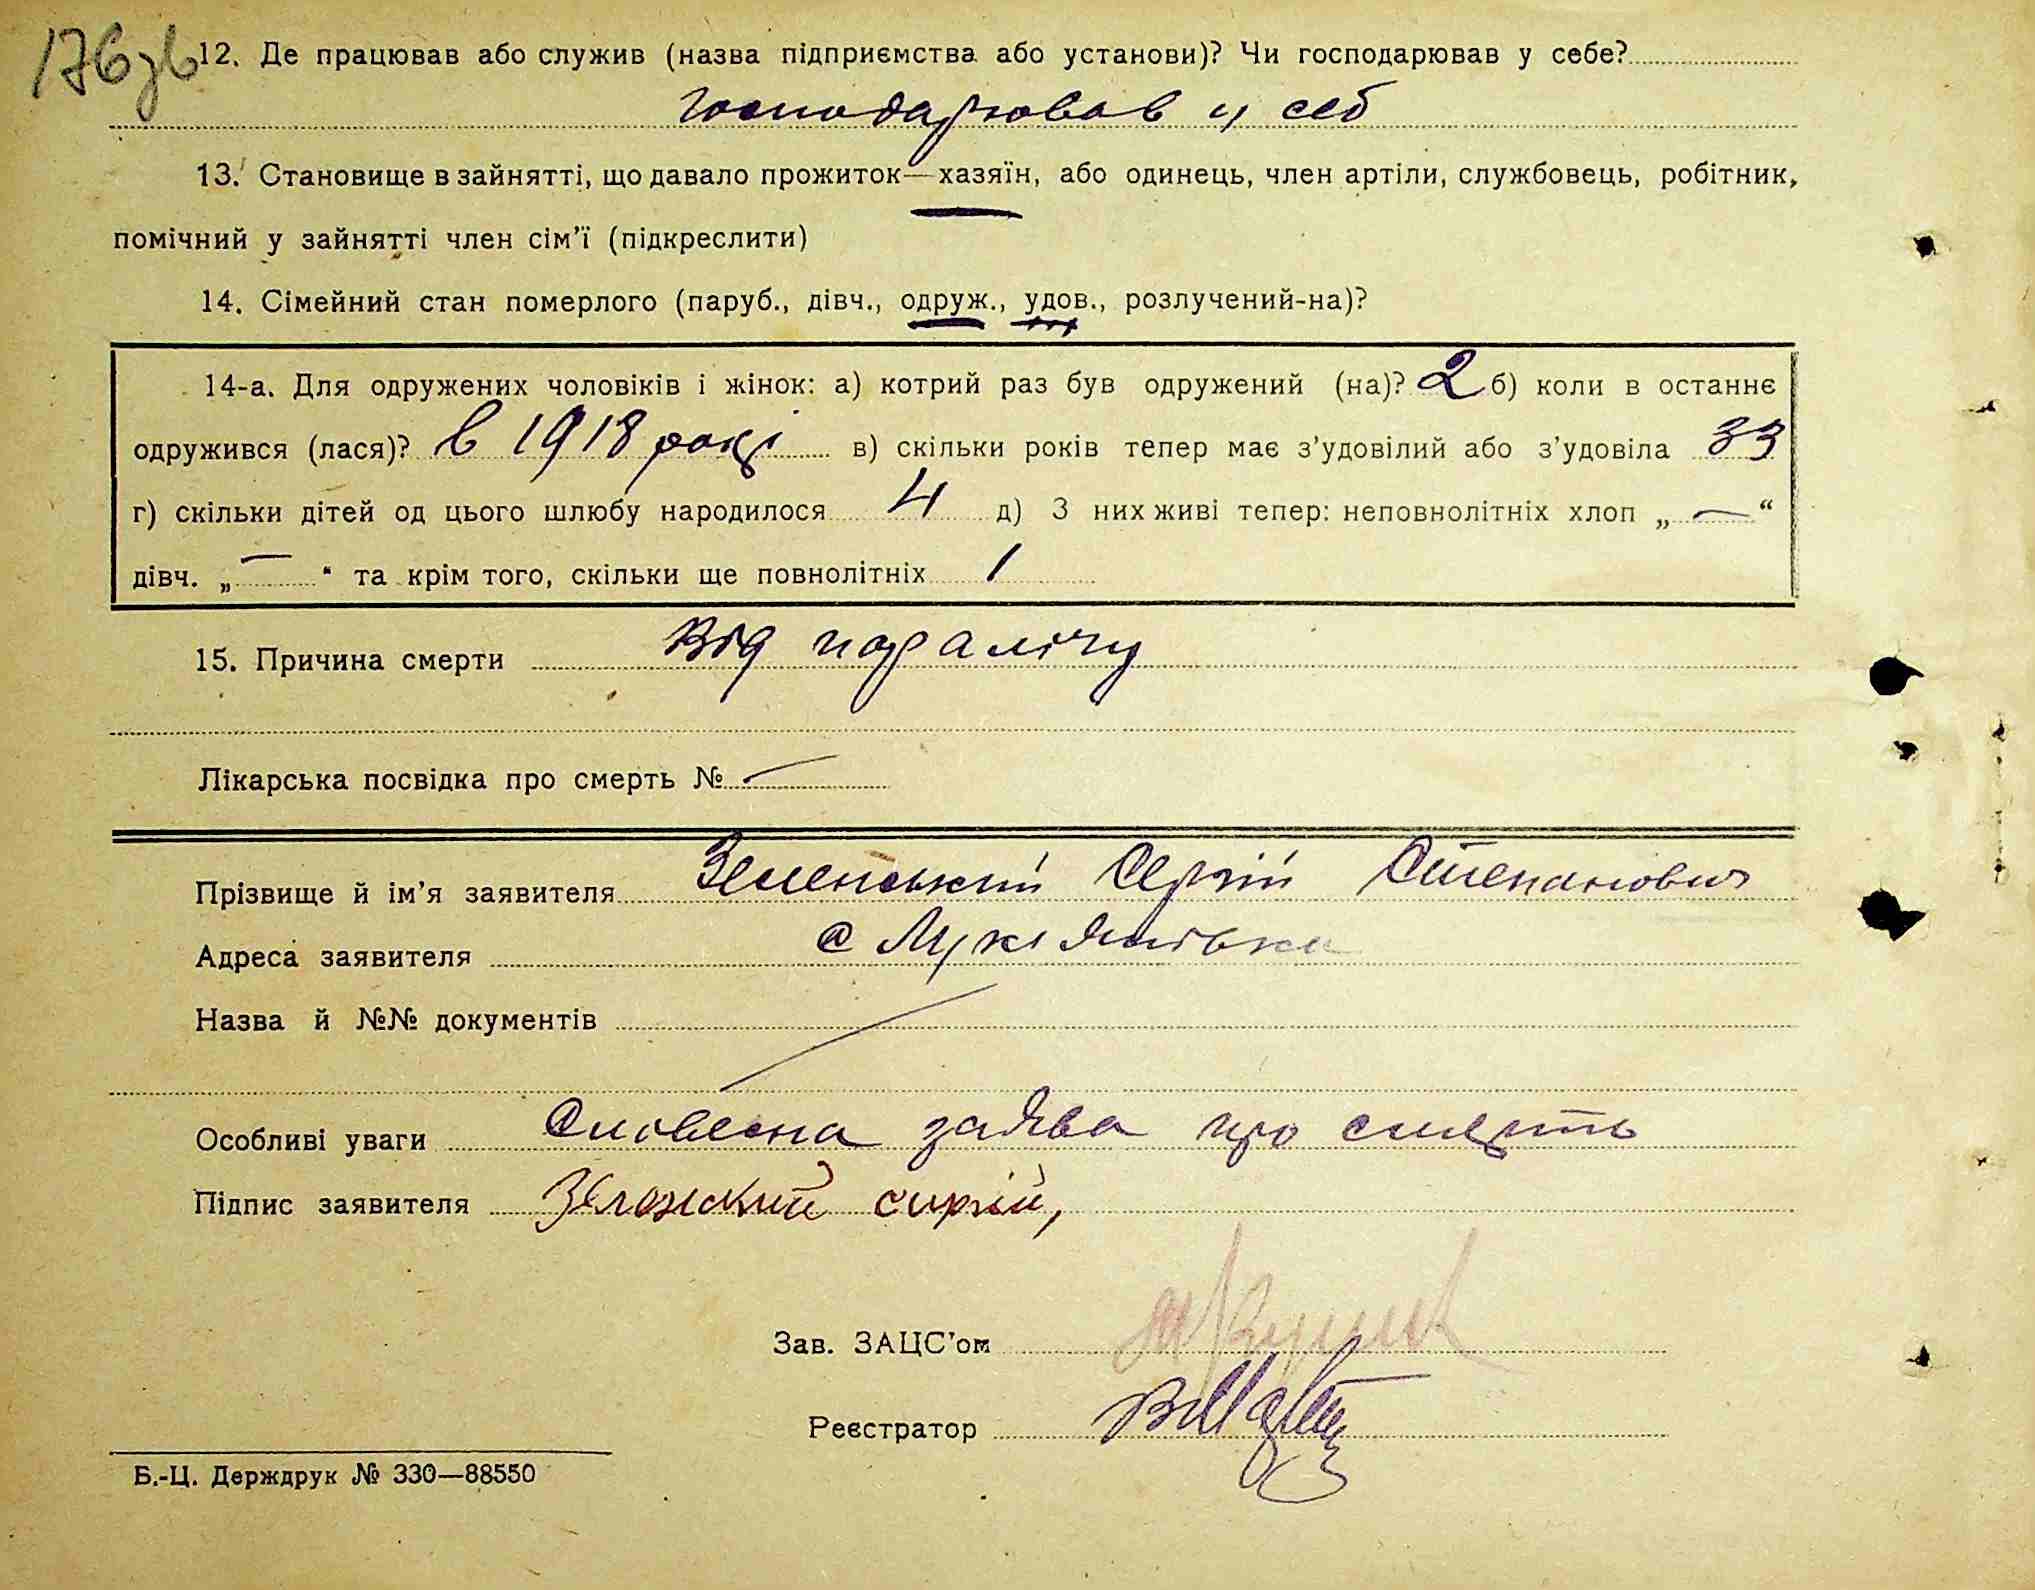 176 зв
12. Де працював або служив (назва підприємства або установи)? Чи господарював у себе?
господарював у себ
13. Становище в зайнятті, що давало прожиток—хазяїн, або одинець, член артіли, службовець, робітник,
помічний у зайнятті член сім'ї (підкреслити)
14. Сімейний стан померлого (паруб., дівч., одруж., удов., розлучений-на)?
14-а. Для одружених чоловіків і жінок: а) котрий раз був одружений (на)? 2 б) коли в останнє
одружився (лася)? в 1918 році в) скільки років тепер має з'удовілий або з'удовіла 33
г) скільки дітей од цього шлюбу народилося 4 д) З них живі тепер: неповнолітніх хлоп „ — “
дівч. „ — “ та крім того, скільки ще повнолітніх 1
15. Причина смерти Від паралічу
Лікарська посвідка про смерть № —
Прізвище й ім'я заявителя Зеленський Сергій Степанович
Адреса заявителя с Лукіянівка
Назва й №№ документів
Особливі уваги Словесна заява про смерть
Підпис заявителя Зеленский сиргій,
Зав. ЗАЦС'ом
Реєстратор
Б.-Ц. Держдрук № 330—88550